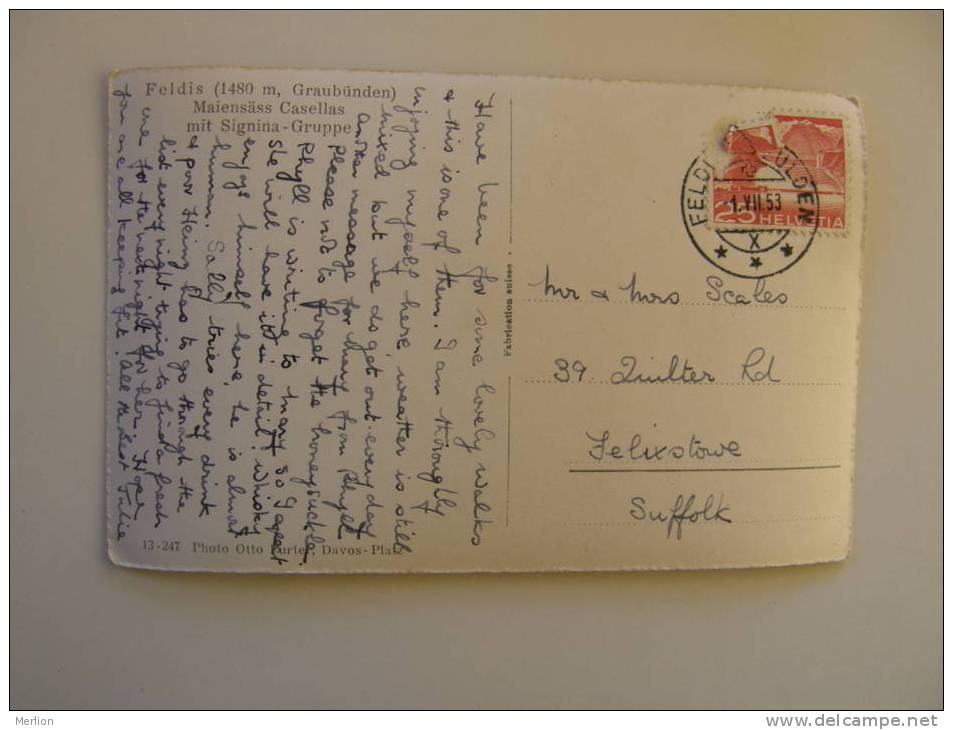 Feldis (1480 m, Graubünden)
Maiensäss Casellas
mit Signina-Gruppe
Have been for some lovely walks
& this is one of them. I am thoroughly
enjoying myself here weather is still
mixed but we do get out every day
another message for Mary from Phyll
Please not to forget the honeysuckle.
Phyll is writing to Mary so I expect
she will have it in detail! Whisky
enjoys himself here, he is almost
human. Sally tries every drink
& poor Heinz has to go through the
list every night trying to find a fresh
one for the next night for her. Hope
you are all keeping fit. All the best Julie
13-247 Photo Otto Furter, Davos-Platz
Fabrication suisse
FELDI ULDEN
1.VII.53
X
25 HELVETIA
Mr & Mrs Scales
39 Quilter Rd
Felixstowe
Suffolk
Merlion
www.delcampe.net